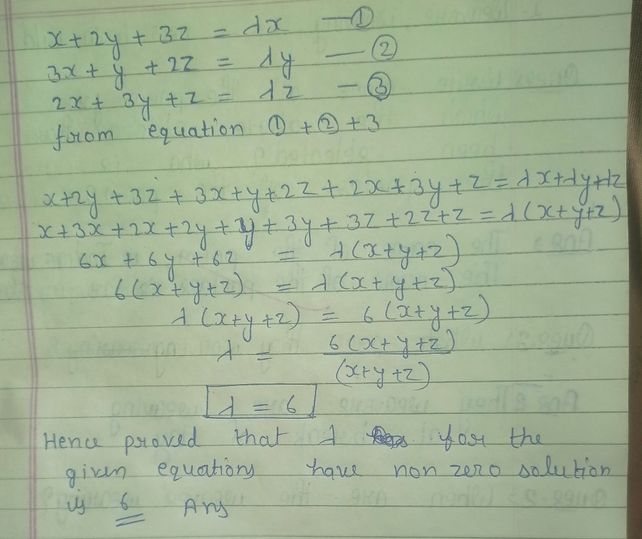 x + 2y + 3z = λx — ①
3x + y + 2z = λy — ②
2x + 3y + z = λz — ③
from equation ① + ② + 3
x+2y + 3z + 3x+y+2z + 2x+3y+z = λx+λy+λz
x+3x+2x+2y+y+3y+3z+2z+z = λ(x+y+z)
6x + 6y + 6z = λ(x+y+z)
6(x+y+z) = λ(x+y+z)
λ(x+y+z) = 6(x+y+z)
λ = 6(x+y+z)
(x+y+z)
λ = 6
Hence proved that λ for the
given equations have non zero solution
is 6 Ans